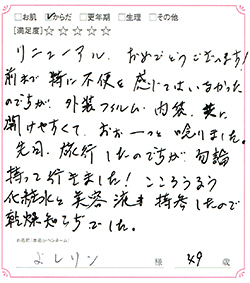 □お肌 ☑からだ □更年期 □生理 □その他
[満足度]☆☆☆☆☆
リニューアル、おめでとうございます!
前れで特に不便を感じてはいなかった
のですが、外装フィルム・内袋、共に
開けやすくて、おお〜っと唸りました。
先日、旅行したのですが勿論
持って行きました! こころうるう
化粧水と美容液も持参したので
乾燥知らずでした。
お名前(本名orペンネーム)
よしリン 様 49 歳